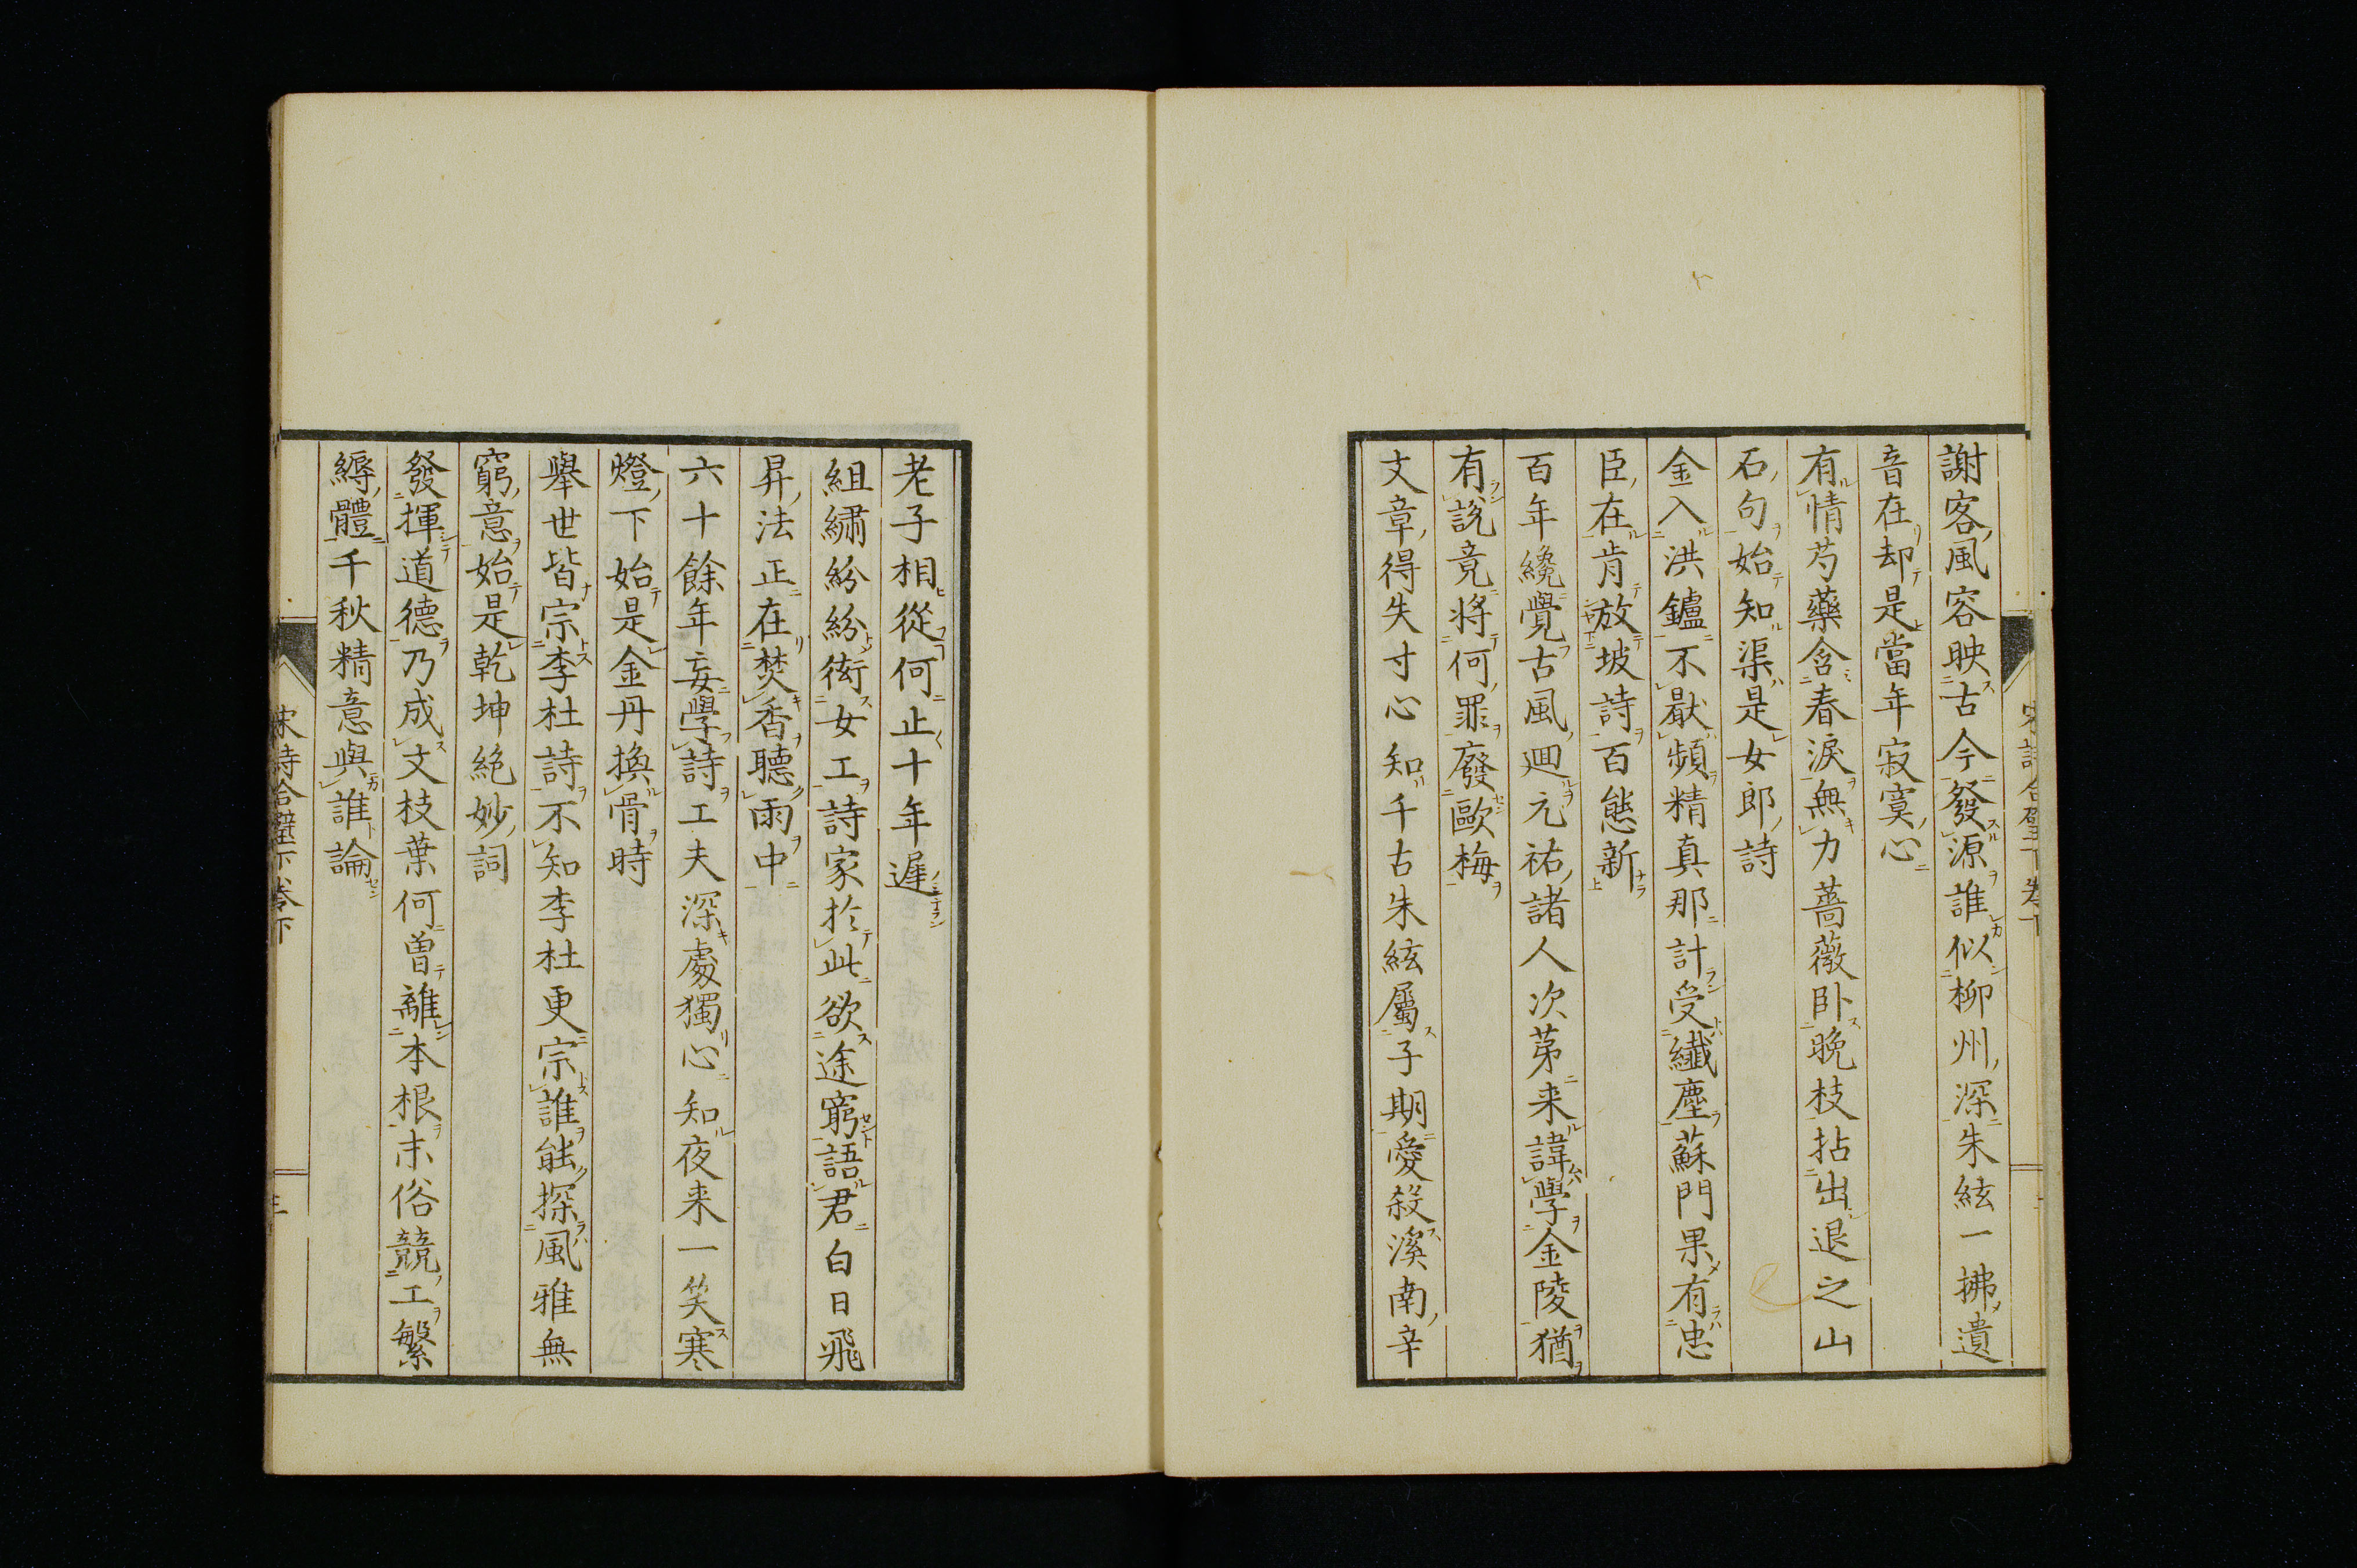 謝客風容映古今發源誰似柳州深朱絃一拂遺
音在却是當年寂寞心
有情芍藥含春淚無力薔薇卧晚枝拈出退之山
石句始知渠是女郎詩
金入洪鑪不厭頻精真那計受纖塵蘇門果有忠
臣在肯放坡詩百態新
百年纔覺古風廻元祐諸人次苐来諱學金陵猶
有說竟將何罪廢歐梅
文章得失寸心知千古朱絃屬子期愛殺溪南辛
老子相從何止十年遲
組繡紛紛衒女工詩家於此欲途窮語君白日飛
昇法正在焚香聽雨中
六十餘年妄學詩工夫深處獨心知夜来一笑寒
燈下始是金丹換骨時
舉世皆宗李杜詩不知李杜更宗誰能探風雅無
窮意始是乾坤絕妙詞
發揮道德乃成文枝葉何曾離本根末俗競工繁
縟體千秋精意與誰論
宋詩合璧下卷下